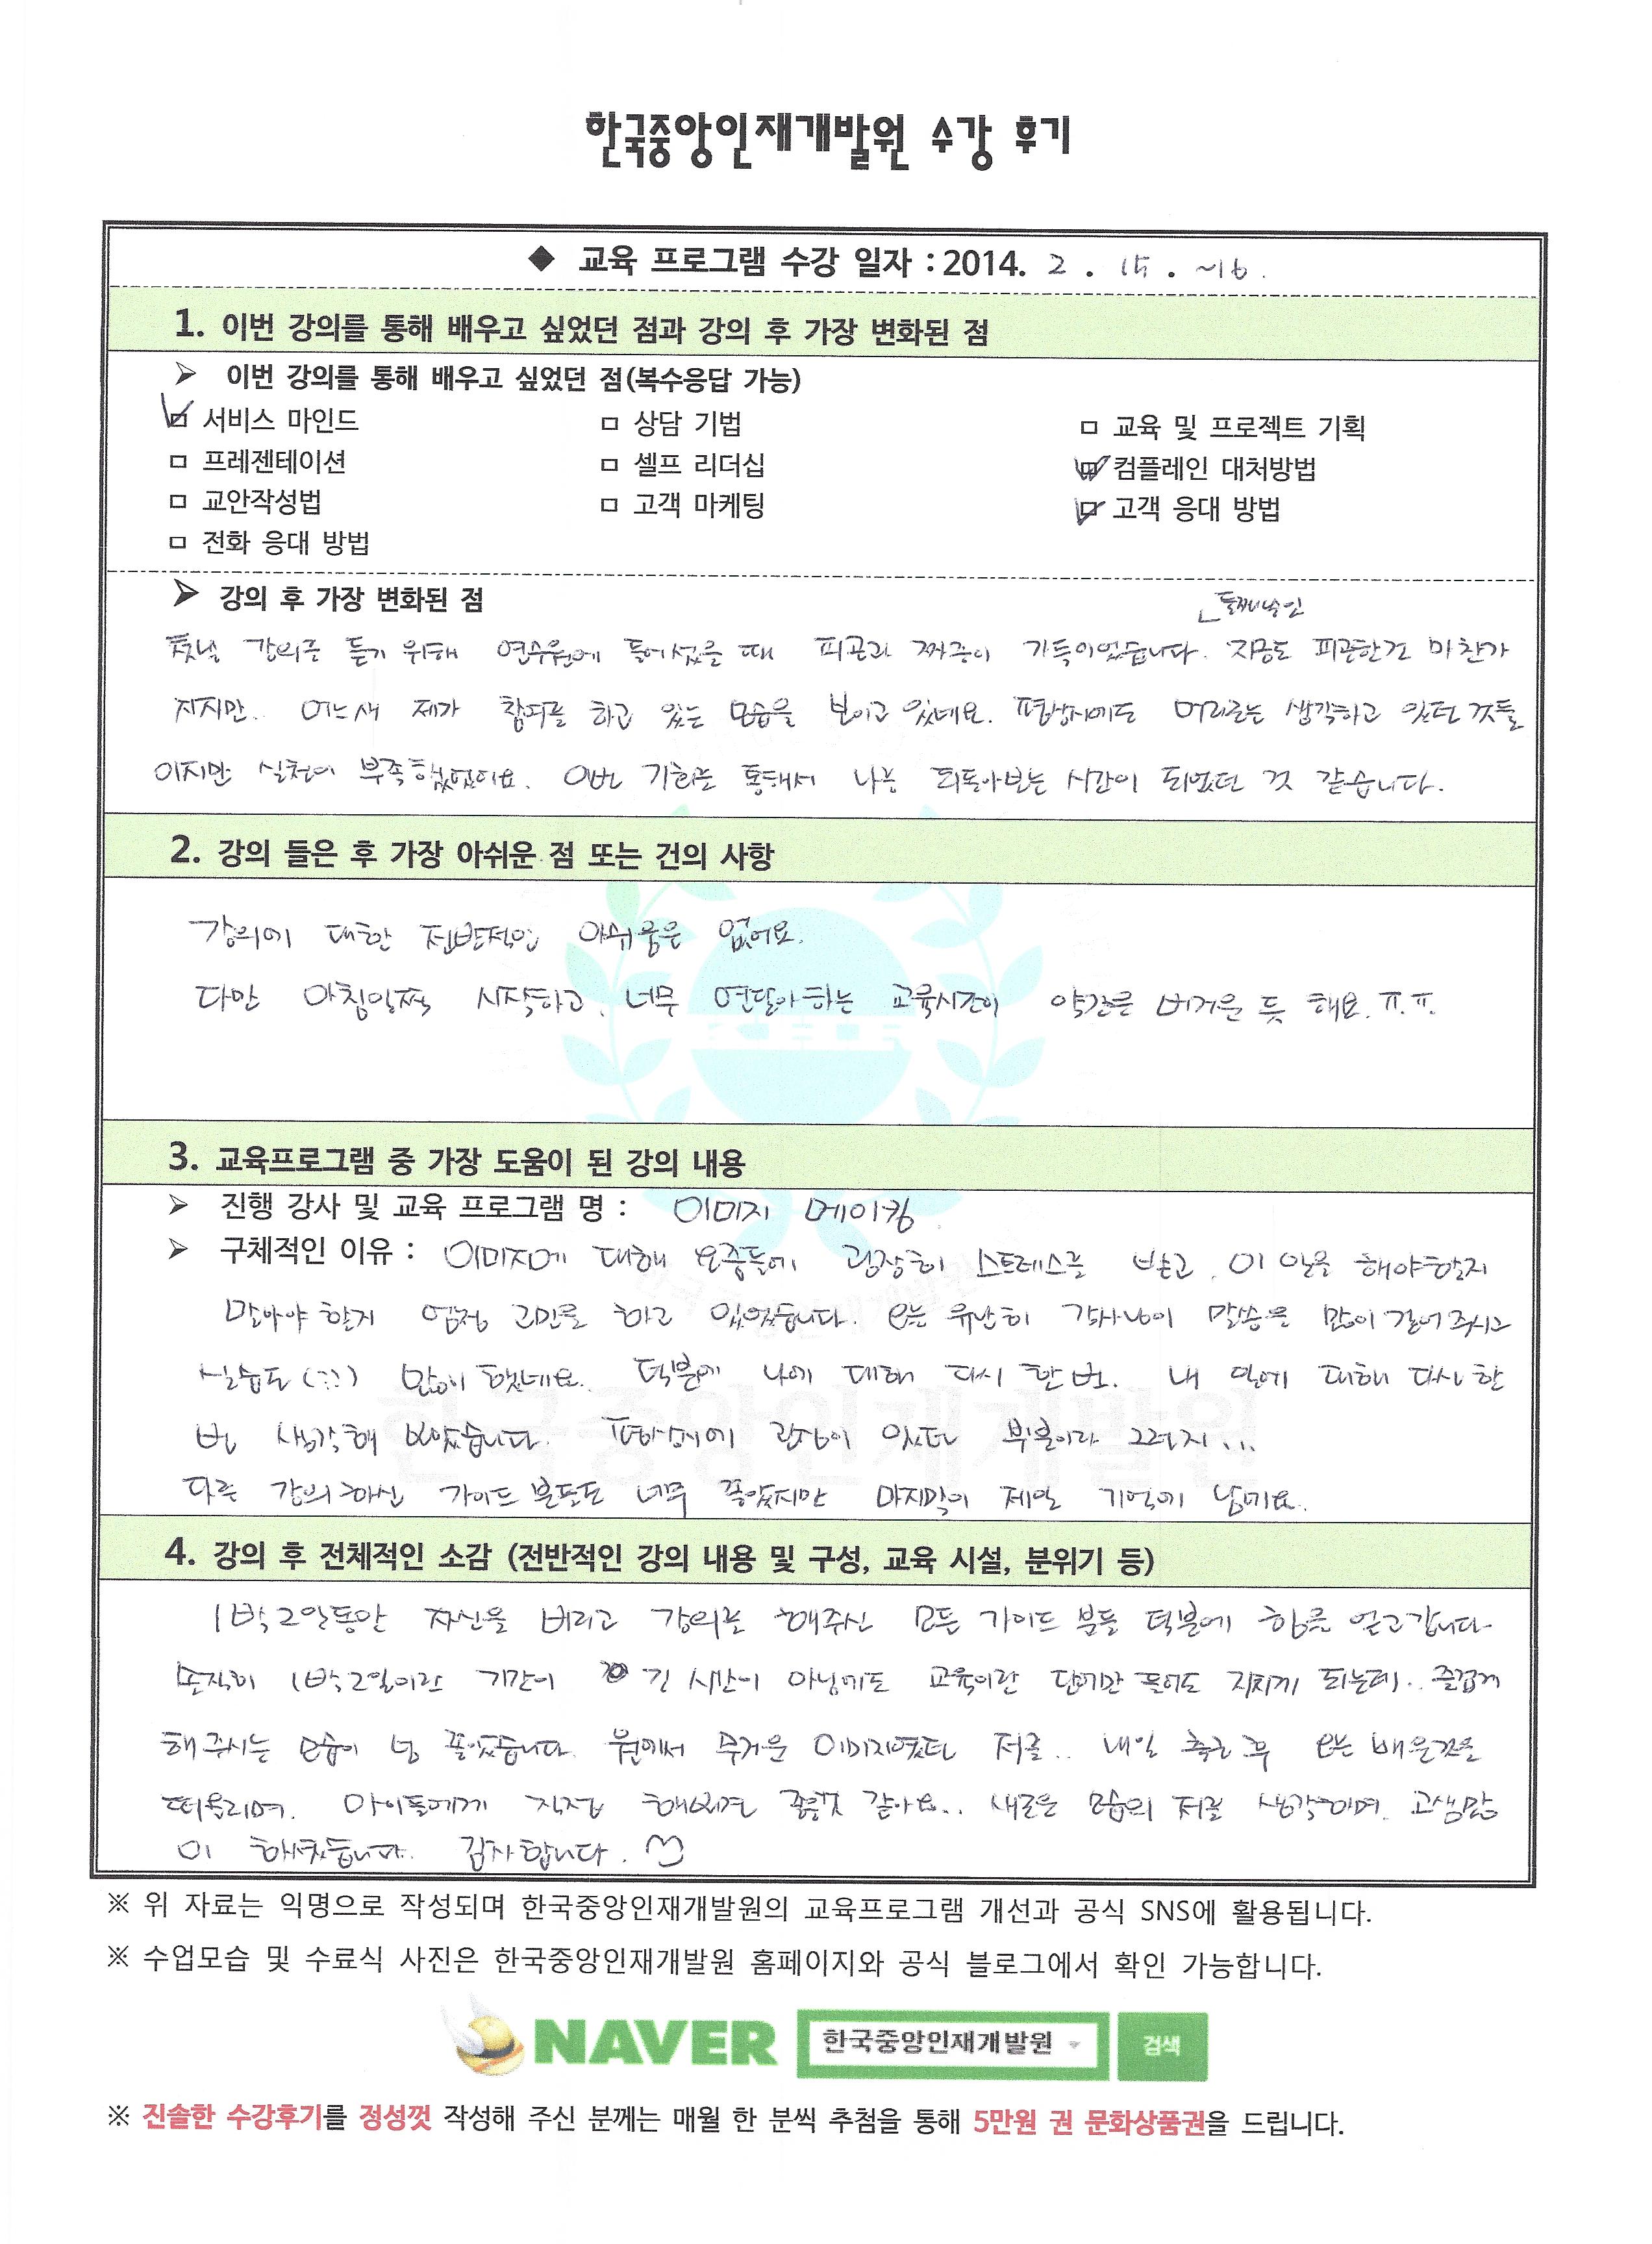 한국중앙인재개발원 수강 후기
◆ 교육 프로그램 수강 일자 : 2014. 2 . 15 . ~16 .
1. 이번 강의를 통해 배우고 싶었던 점과 강의 후 가장 변화된 점
➢ 이번 강의를 통해 배우고 싶었던 점(복수응답 가능)
☑ 서비스 마인드 □ 상담 기법 □ 교육 및 프로젝트 기획
□ 프레젠테이션 □ 셀프 리더십 ☑ 컴플레인 대처방법
□ 교안작성법 □ 고객 마케팅 ☑ 고객 응대 방법
□ 전화 응대 방법
➢ 강의 후 가장 변화된 점
둘째날인
첫날 강의를 듣기 위해 연수원에 들어섰을 때 피곤과 짜증이 가득이었습니다. 지금도 피곤한건 마찬가
지지만.. 어느새 제가 참여를 하고 있는 모습을 보이고 있네요. 평상시에도 머리로는 생각하고 있던 것들
이지만 실천이 부족했었어요. 이번 기회를 통해서 나를 되돌아보는 시간이 되었던 것 같습니다.
2. 강의 들은 후 가장 아쉬운 점 또는 건의 사항
강의에 대한 전반적인 아쉬움은 없어요.
다만 아침일찍 시작하고, 너무 연달아하는 교육시간이 약간은 버거운 듯 해요. ㅠ.ㅠ.
3. 교육프로그램 중 가장 도움이 된 강의 내용
➢ 진행 강사 및 교육 프로그램 명 : 이미지 메이킹
➢ 구체적인 이유 : 이미지에 대해 요즘들어 굉장히 스트레스를 받고, 이 일을 해야할지
말아야 할지 엄청 고민을 하고 있었습니다. 오늘 유난히 강사님이 말씀을 많이 걸어주시고
실습도(??) 많이 했네요. 덕분에 나에 대해 다시 한 번. 내 일에 대해 다시 한
번 생각해 보았습니다. 평상시에 관심이 있던 부분이라 그런지...
다른 강의하신 가이드 분들도 너무 좋았지만 마지막이 제일 기억에 남네요.
4. 강의 후 전체적인 소감 (전반적인 강의 내용 및 구성, 교육 시설, 분위기 등)
1박2일동안 자신을 버리고 강의를 해주신 모든 가이드 분들 덕분에 힘을 얻고갑니다
솔직히 1박2일이란 기간이 긴 시간이 아님에도 교육이란 단어만 들어도 지치게 되는데.. 즐겁게
해주시는 모습이 넘 좋았습니다. 원에서 무거운 이미지였던 저를.. 내일 출근 후 오늘 배운것을
떠올리며. 아이들에게 직접 해보면 좋을것 같아요.. 새로운 모습의 저를 생각하며. 고생많
이 하셨습니다. 감사합니다. ♡
※ 위 자료는 익명으로 작성되며 한국중앙인재개발원의 교육프로그램 개선과 공식 SNS에 활용됩니다.
※ 수업모습 및 수료식 사진은 한국중앙인재개발원 홈페이지와 공식 블로그에서 확인 가능합니다.
NAVER 한국중앙인재개발원 검색
※ 진솔한 수강후기를 정성껏 작성해 주신 분께는 매월 한 분씩 추첨을 통해 5만원 권 문화상품권을 드립니다.